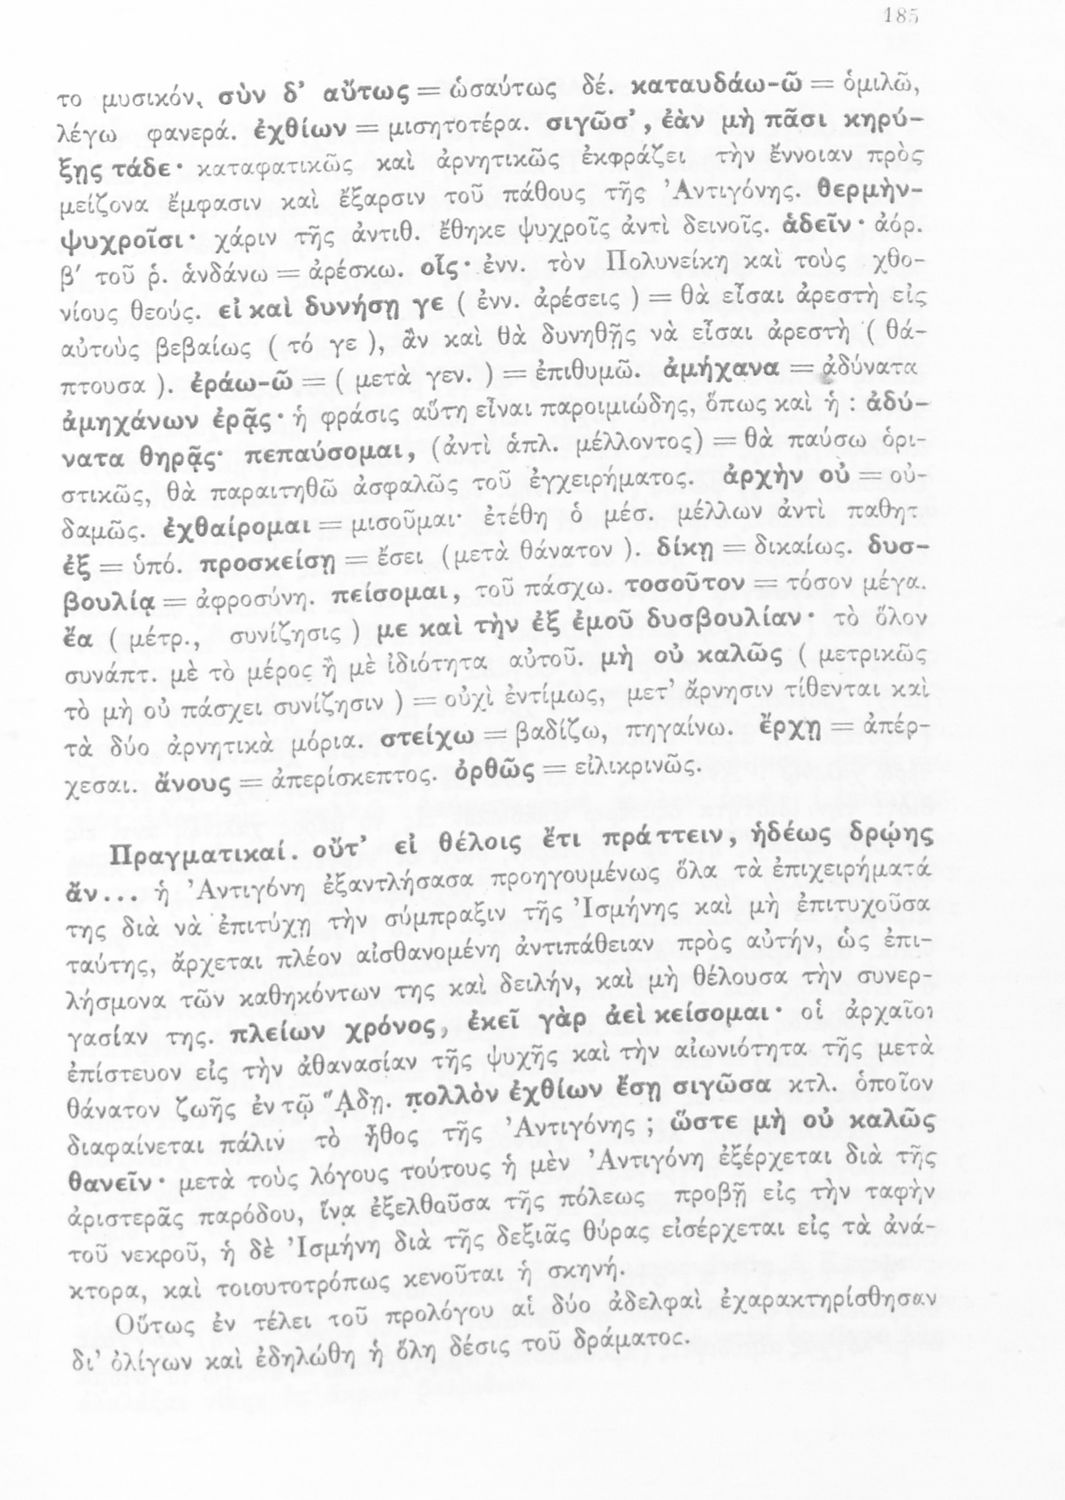 185
το μυσικόν, σὺν δ’ αὔτως = ὡσαύτως δέ. καταυδάω-ῶ = ὁμιλῶ,
λέγω φανερά. ἐχθίων = μισητοτέρα. σιγῶσ’, ἐὰν μὴ πᾶσι κηρύ-
ξῃς τάδε· καταφατικῶς καὶ ἀρνητικῶς ἐκφράζει τὴν ἔννοιαν πρὸς
μείζονα ἔμφασιν καὶ ἔξαρσιν τοῦ πάθους τῆς Ἀντιγόνης. θερμὴν-
ψυχροῖσι· χάριν τῆς ἀντιθ. ἔθηκε ψυχροῖς ἀντὶ δεινοῖς. ἁδεῖν· ἀόρ.
β′ τοῦ ῥ. ἁνδάνω = ἀρέσκω. οἷς· ἐνν. τὸν Πολυνείκη καὶ τοὺς χθο-
νίους θεούς. εἰ καὶ δυνήσῃ γε ( ἐνν. ἀρέσεις ) = θὰ εἶσαι ἀρεστὴ εἰς
αὐτοὺς βεβαίως ( τό γε ), ἂν καὶ θὰ δυνηθῇς νὰ εἶσαι ἀρεστὴ ( θά-
πτουσα ). ἐράω-ῶ = ( μετὰ γεν. ) = ἐπιθυμῶ. ἀμήχανα = ἀδύνατα
ἀμηχάνων ἐρᾷς· ἡ φράσις αὕτη εἶναι παροιμιώδης, ὅπως καὶ ἡ : ἀδύ-
νατα θηρᾷς· πεπαύσομαι, (ἀντὶ ἁπλ. μέλλοντος) = θὰ παύσω ὁρι-
στικῶς, θὰ παραιτηθῶ ἀσφαλῶς τοῦ ἐγχειρήματος. ἀρχὴν οὐ = οὐ-
δαμῶς. ἐχθαίρομαι = μισοῦμαι· ἐτέθη ὁ μέσ. μέλλων ἀντὶ παθητ
ἐξ = ὑπό. προσκείσῃ = ἔσει (μετὰ θάνατον ). δίκῃ = δικαίως. δυσ-
βουλίᾳ = ἀφροσύνη. πείσομαι, τοῦ πάσχω. τοσοῦτον = τόσον μέγα.
ἔα ( μέτρ., συνίζησις ) με καὶ τὴν ἐξ ἐμοῦ δυσβουλίαν· τὸ ὅλον
συνάπτ. μὲ τὸ μέρος ἢ μὲ ἰδιότητα αὐτοῦ. μὴ οὐ καλῶς ( μετρικῶς
τὸ μὴ οὐ πάσχει συνίζησιν ) = οὐχὶ ἐντίμως, μετ’ ἄρνησιν τίθενται καὶ
τὰ δύο ἀρνητικὰ μόρια. στείχω = βαδίζω, πηγαίνω. ἔρχῃ = ἀπέρ-
χεσαι. ἄνους = ἀπερίσκεπτος. ὀρθῶς = εἰλικρινῶς.
Πραγματικαί. οὔτ’ εἰ θέλοις ἔτι πράττειν, ἡδέως δρῴης
ἄν... ἡ Ἀντιγόνη ἐξαντλήσασα προηγουμένως ὅλα τὰ ἐπιχειρήματά
της διὰ νὰ ἐπιτύχῃ τὴν σύμπραξιν τῆς Ἰσμήνης καὶ μὴ ἐπιτυχοῦσα
ταύτης, ἄρχεται πλέον αἰσθανομένη ἀντιπάθειαν πρὸς αὐτήν, ὡς ἐπι-
λήσμονα τῶν καθηκόντων της καὶ δειλήν, καὶ μὴ θέλουσα τὴν συνερ-
γασίαν της. πλείων χρόνος, ἐκεῖ γὰρ ἀεὶ κείσομαι· οἱ ἀρχαῖοι
ἐπίστευον εἰς τὴν ἀθανασίαν τῆς ψυχῆς καὶ τὴν αἰωνιότητα τῆς μετὰ
θάνατον ζωῆς ἐν τῷ Ἅδῃ. πολλὸν ἐχθίων ἔσῃ σιγῶσα κτλ. ὁποῖον
διαφαίνεται πάλιν τὸ ἦθος τῆς Ἀντιγόνης ; ὥστε μὴ οὐ καλῶς
θανεῖν· μετὰ τοὺς λόγους τούτους ἡ μὲν Ἀντιγόνη ἐξέρχεται διὰ τῆς
ἀριστερᾶς παρόδου, ἵνα ἐξελθοῦσα τῆς πόλεως προβῇ εἰς τὴν ταφὴν
τοῦ νεκροῦ, ἡ δὲ Ἰσμήνη διὰ τῆς δεξιᾶς θύρας εἰσέρχεται εἰς τὰ ἀνά-
κτορα, καὶ τοιουτοτρόπως κενοῦται ἡ σκηνή.
Οὕτως ἐν τέλει τοῦ προλόγου αἱ δύο ἀδελφαὶ ἐχαρακτηρίσθησαν
δι’ ὀλίγων καὶ ἐδηλώθη ἡ ὅλη δέσις τοῦ δράματος.